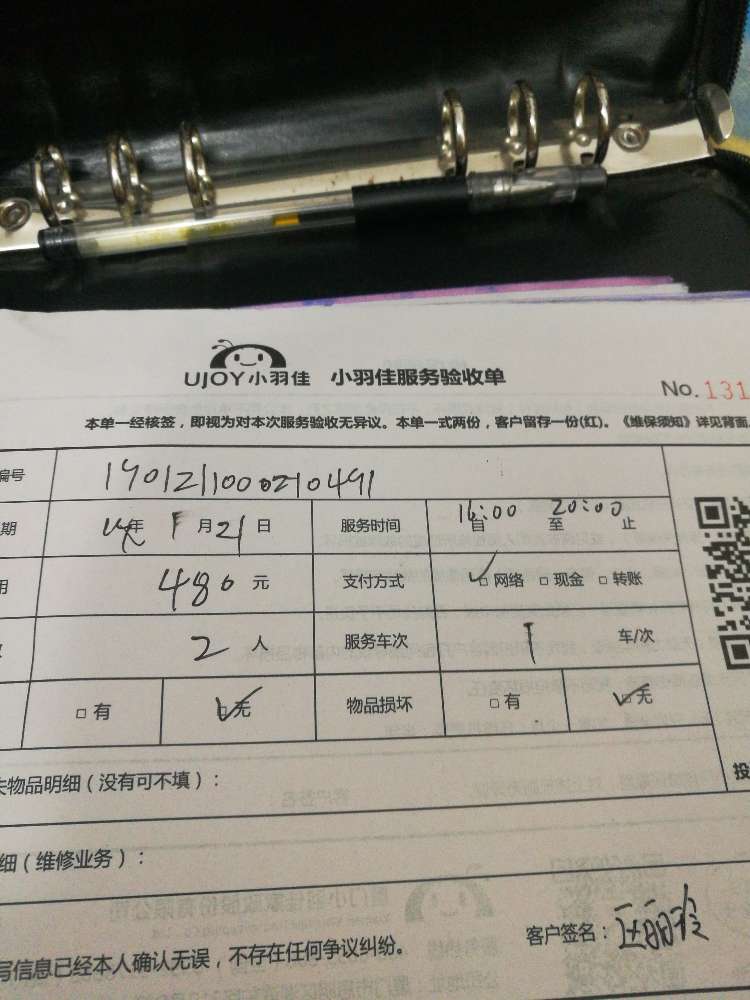 UJOY小羽佳 小羽佳服务验收单
No. 131
本单一经核签，即视为对本次服务验收无异议。本单一式两份，客户留存一份(红)。《维保须知》详见背面
编号 1901211000210491
期 19年 1月21日 服务时间 自16:00至20:00止
用 480元 支付方式 □网络 □现金 □转账
2人 服务车次 1 车/次
□有 □无 物品损坏 □有 □无
失物品明细（没有可不填）：
细（维修业务）：
客户签名：
写信息已经本人确认无误，不存在任何争议纠纷。
投